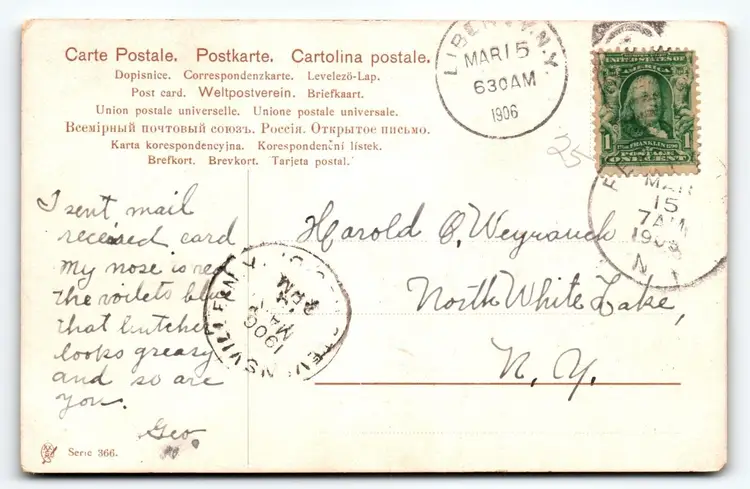 Carte Postale. Postkarte. Cartolina postale.
Dopisnice. Correspondenzkarte. Levelező-Lap.
Post card. Weltpostverein. Briefkaart.
Union postale universelle. Unione postale universale.
Всемірный почтовый союзъ. Россія. Открытое письмо.
Karta korespondencyjna. Korespondenční lístek.
Brefkort. Brevkort. Tarjeta postal.
LIBERTY, N.Y.
MAR 15
630AM
1906
UNITED STATES OF
AMERICA
1 FRANKLIN 1
POSTAGE
ONE CENT
25
MAR
15
7AM
N.Y.
I sent mail
received card
My nose is red
the voilets blue
that butcher
looks greasy
and so are
you.
Geo
Harold O. Weyrauch
North White Lake,
N. Y.
STEVENSVILLE N.Y.
MAR
1906
Serie 366.